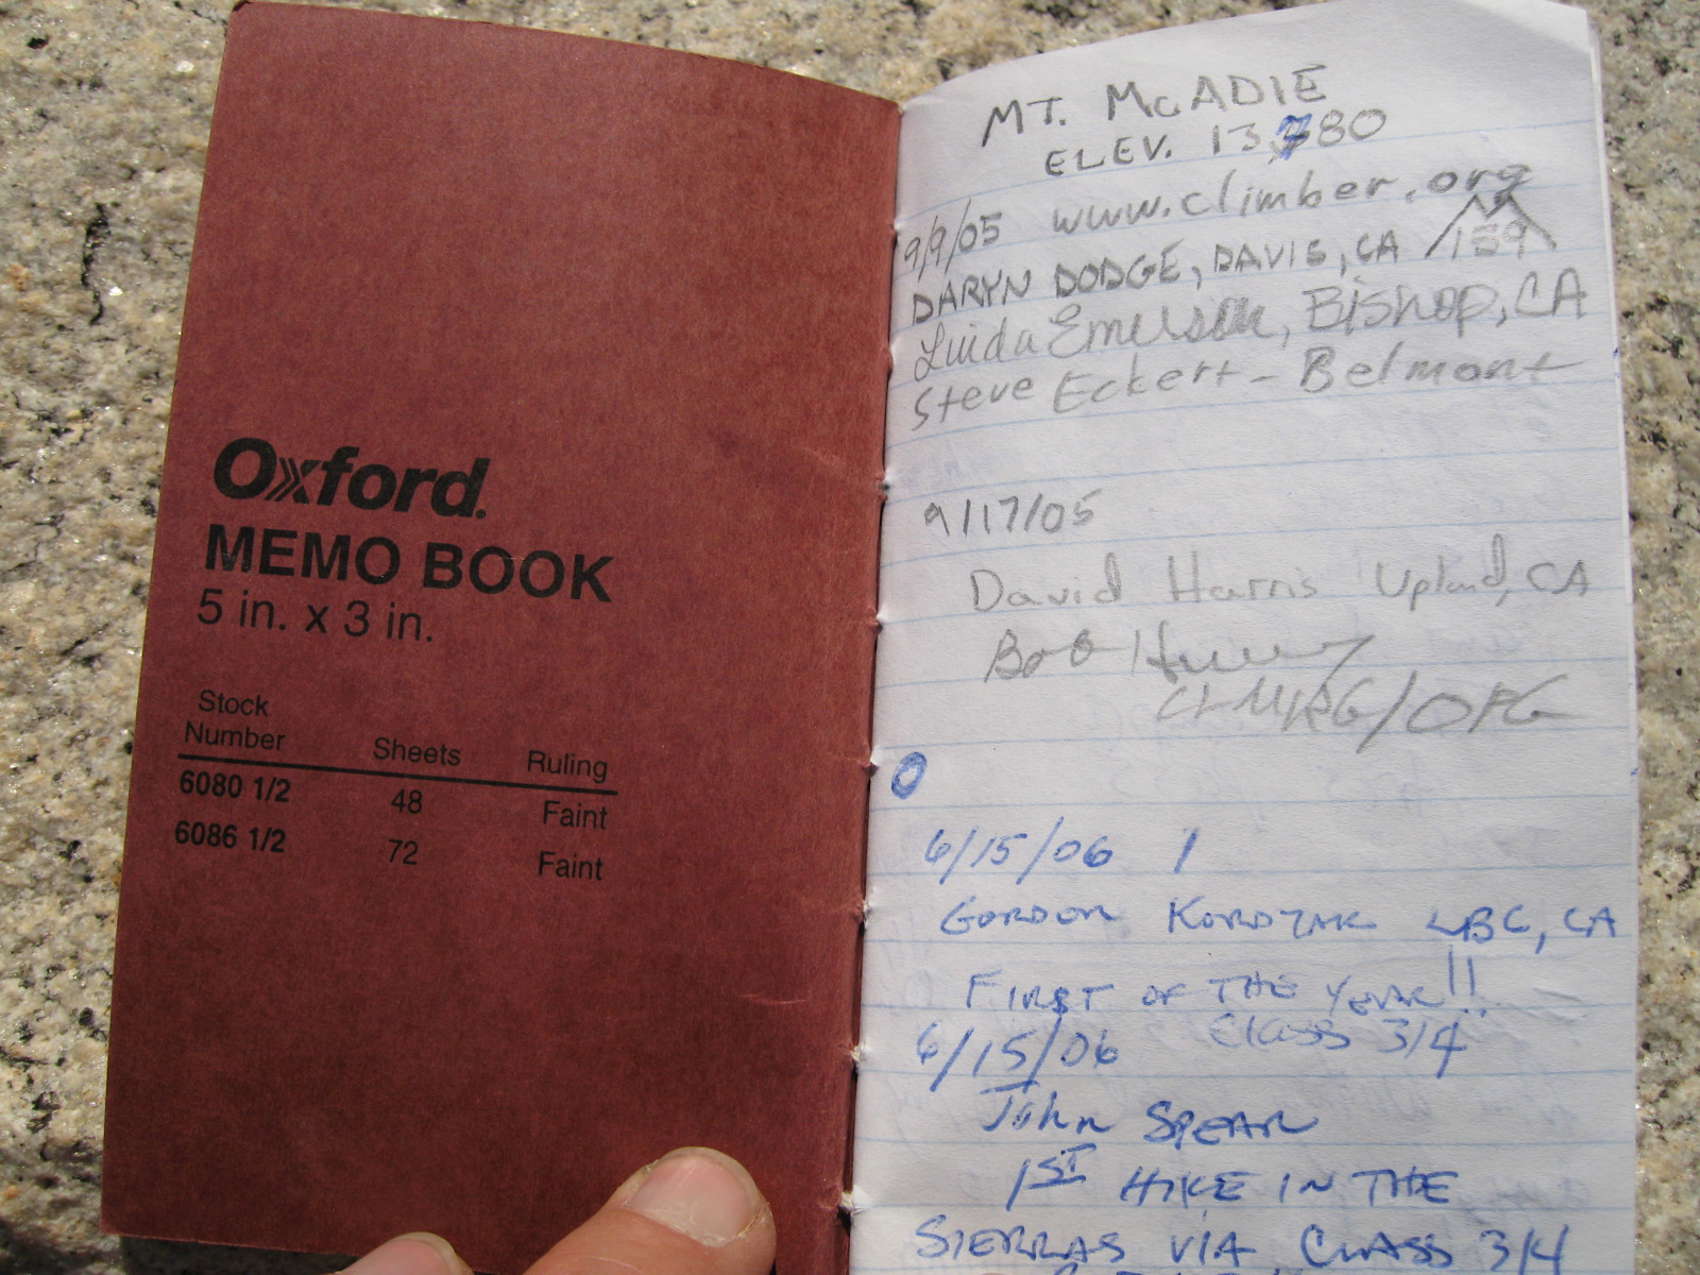 Oxford.
MEMO BOOK
5 in. x 3 in.
Stock Number Sheets Ruling
6080 1/2 48 Faint
6086 1/2 72 Faint
MT. McADIE
ELEV. 13780
9/9/05 www.climber.org
DARYN DODGE, DAVIS, CA 159
Linda Emerson, Bishop, CA
Steve Eckert - Belmont
9/17/05
David Harris Upland, CA
Bob
0
6/15/06 1
GORDON LBC, CA
FIRST OF THE YEAR!!
CLASS 3/4
6/15/06
John SPEAR
1ST HIKE IN THE
SIERRAS VIA CLASS 3/4